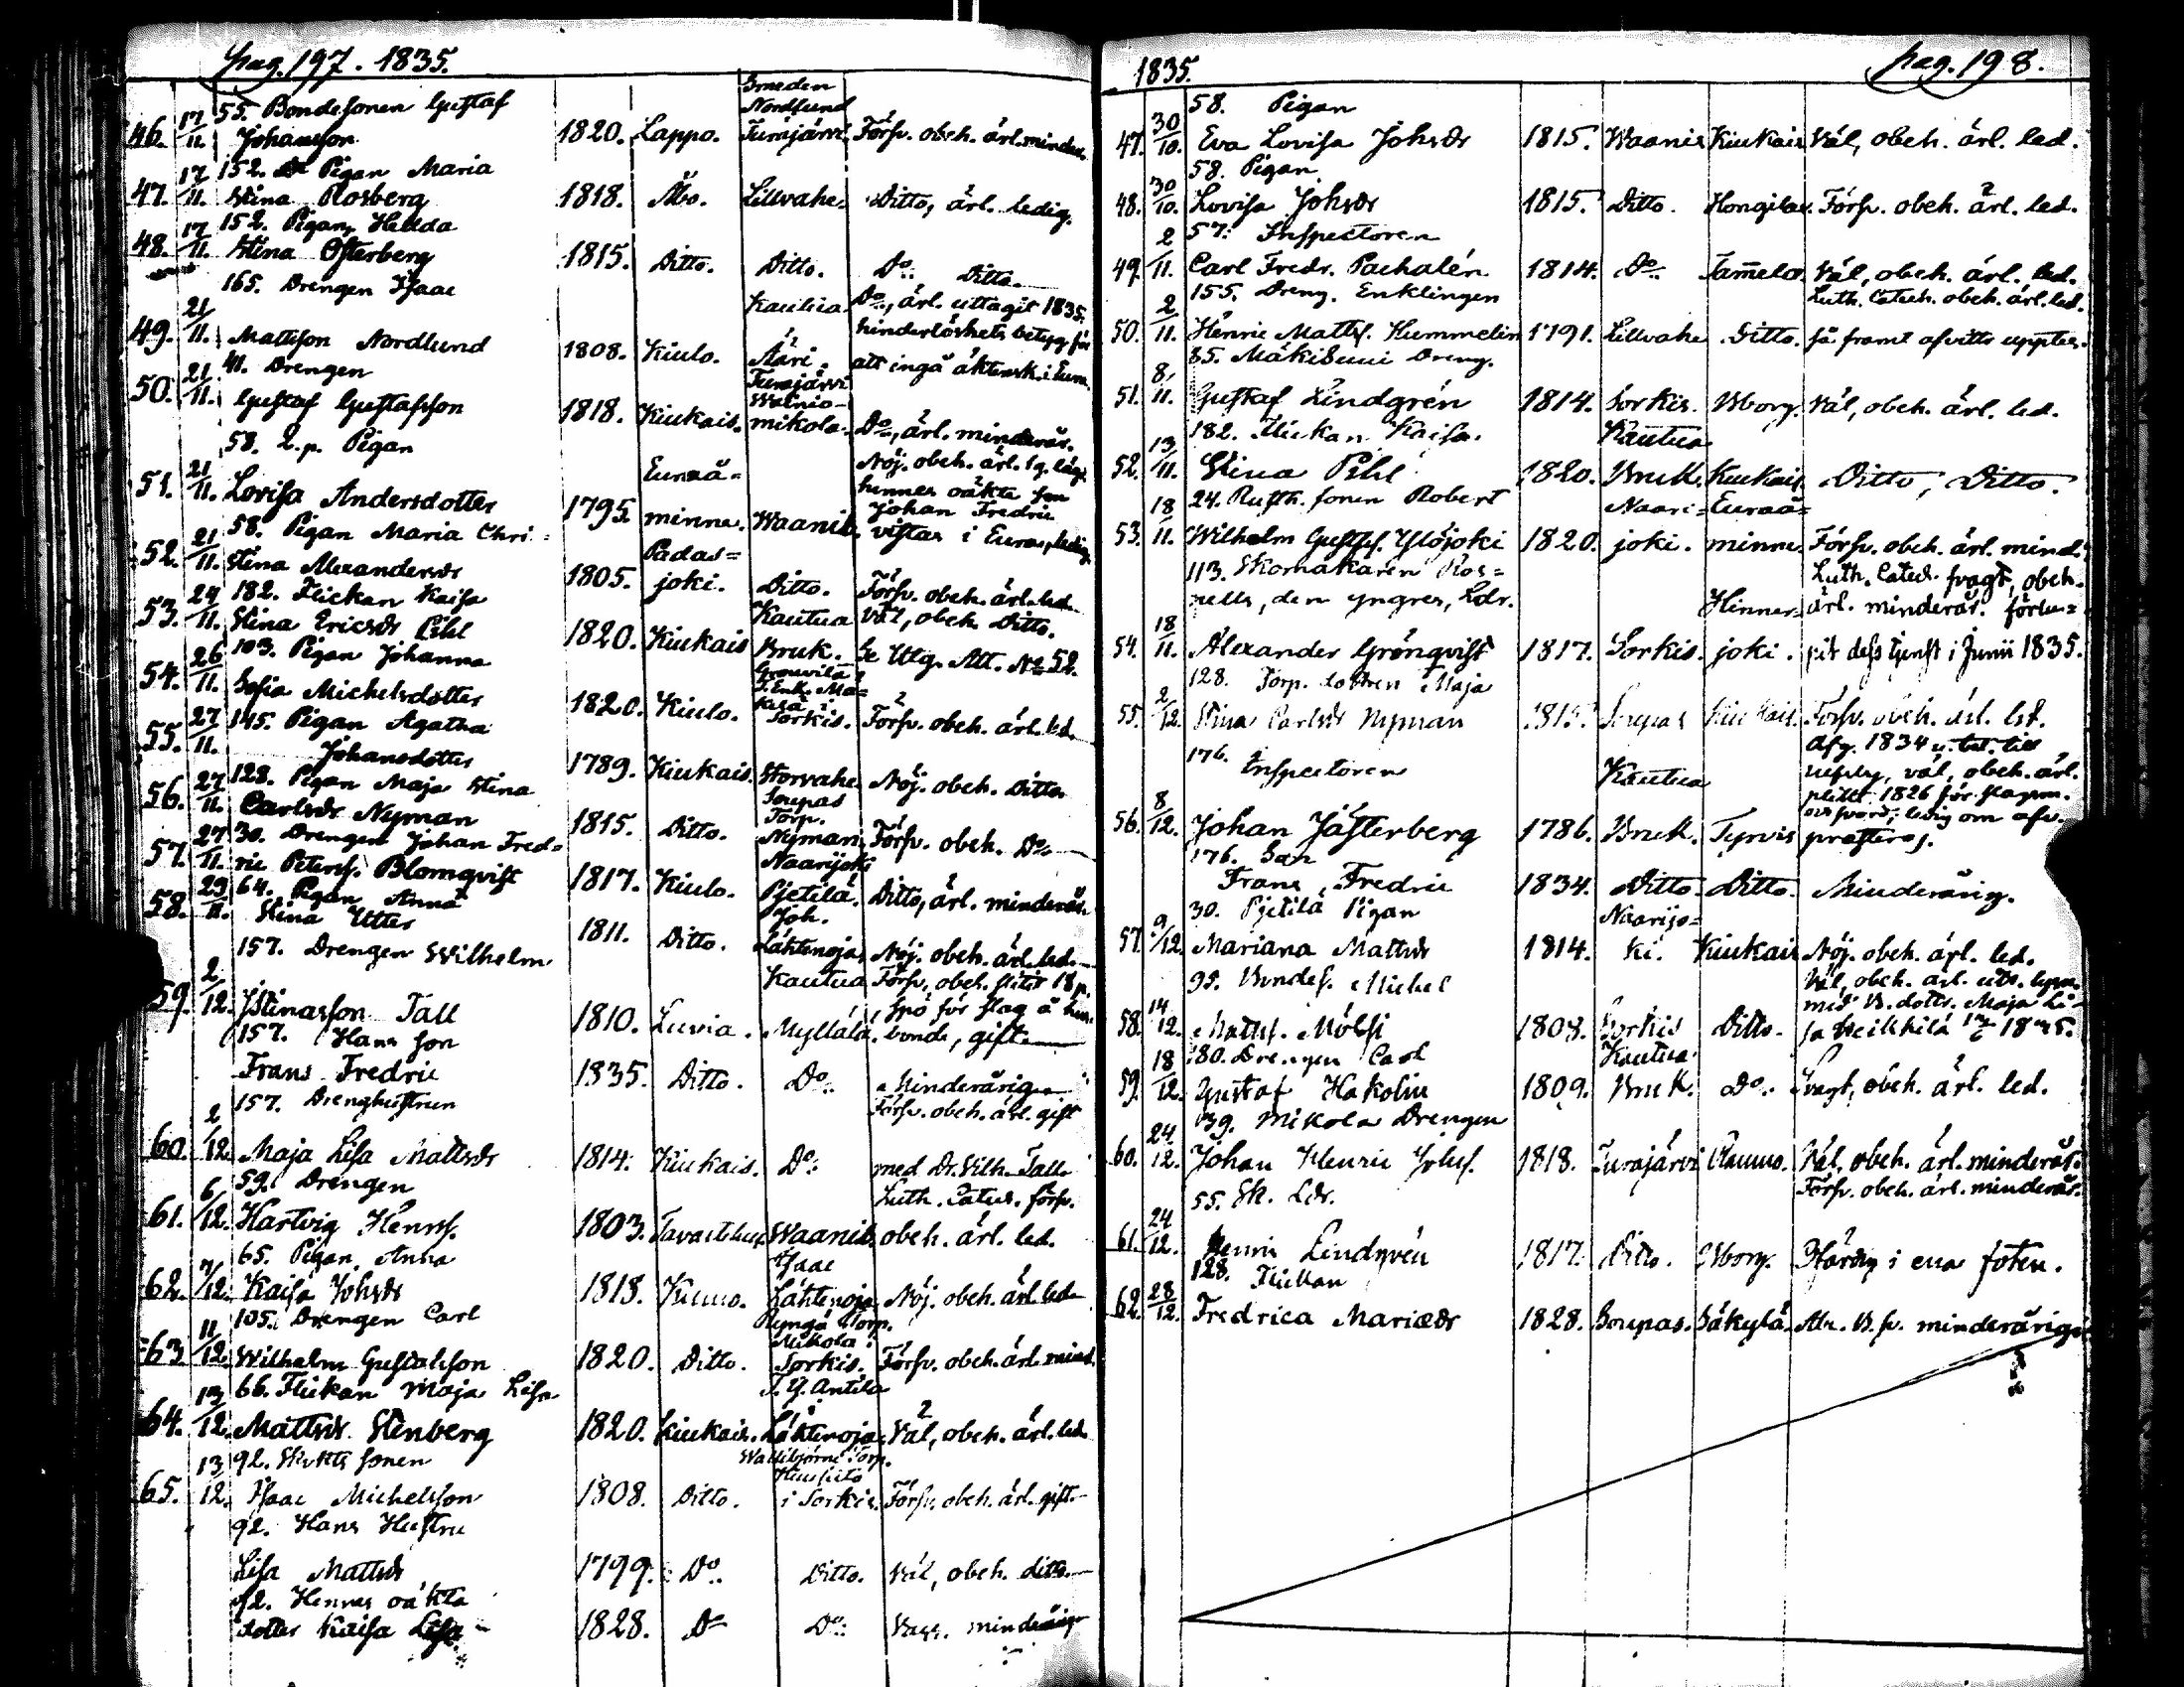 pag. 197. 1835.
46. 17/11. 55. Bondesonen Gustaf
Johansson 1820. Lappo. Smeden Nordlund Turajärvi. Försv. obeh. ärl. minder.
47. 17/11. 152. Pigan Maria
Stina Rosberg 1818. Åbo. Lillvahe. Ditto, ärl. ledig.
48. 17/11. 152. Pigan Hedda
Stina Österberg 1815. Ditto. Ditto. Do. Ditto.
49. 21/11. 165. Drengen Isaac
Mattsson Nordlund 1808. Kiulo. Kautua Do, ärl. uttagit 1835.
hinderlöshets betyg för
att ingå äktensk. i Eura.
50. 21/11. 41. Drengen
Gustaf Gustafsson 1818. Kiukais. Turajärvi mikola. Do, ärl. minderår.
51. 21/11. 58. 2. p. Pigan
Lovisa Andersdotter 1795. Euraå=
minne. Waanis. Nöj. obeh. ärl.
hennes oäkta son
Johan Fredric
vistas i Eura, ledig
52. 21/11. 58. Pigan Maria Chri=
stina Alexandersdr 1805. Padas=
joki. Ditto. Försv. obeh. ärl. led.
53. 24/11. 182. Flickan Kaisa
Stina Ericsdr Pihl 1820. Kiukais Kautua Bruk. Väl, obeh. Ditto.
Se Utg. Att. No 52.
54. 26/11. 103. Pigan Johanna
Sofia Michelsdotter 1820. Kiulo. Sorkis. Försv. obeh. ärl. led.
55. 27/11. 145. Pigan Agatha
Johansdotter 1789. Kiukais. Storvahe Nöj. obeh. Ditto
56. 27/11. 128. Pigan Maja Stina
Carlsdr Nyman 1815. Ditto. Sorpas Torp. Nyman. Försv. obeh. Do
57. 27/11. 30. Drengen Johan Fred=
ric Petersf. Blomqvist 1817. Kiulo. Naarijoki Pjetilä. Ditto, ärl. minderår.
58. 29/11. 64. Pigan Anna
Stina Utter 1811. Ditto. Joh. Lähtenoja. Nöj. obeh. ärl. led.
59. 2/12. 157. Drengen Wilhelm
Stinasson Tall 1810. Luvia. Kautua Myllälä. Försv. obeh. slitit 18 p.
Spö för slag å
bonde, gift.
157. Hans son
Frans Fredric 1835. Ditto. Do. Minderårig.
60. 2/12. 157. Drenghustrun
Maja Lisa Mattsdr 1814. Kiukais. Do. Försv. obeh. ärl. gift
med Dr. Wilh. Tall
61. 6/12. 59. Drengen
Hartvig Henrsf. 1803. Tavastehus Waanis. Luth. Catec. försv.
obeh. ärl. led.
62. 7/12. 65. Pigan Anna
Kaisa Johsdr 1818. Kiulo. Isaac Lähtenoja Nöj. obeh. ärl. led.
63. 11/12. 105. Drengen Carl
Wilhelm Gustafsson 1820. Ditto. Torp. Mikola i Sorkis. Försv. obeh. ärl. mind.
64. 13/12. 66. Flickan Maja Lisa
Mattsdr Stenberg 1820. Kiukais. T. Y. Antila Lähtenoja. Väl, obeh. ärl. led.
65. 13/12. 92. sonen
Isaac Michelsson 1808. Ditto. i Sorkis. Försv. obeh. ärl. gift.
92. Hans Hustru
Lisa Mattsdr 1799. Do. Ditto. Väl, obeh. ditto.
92. Hennes oäkta
dotter Kaisa Lisa 1828. Do Do. minderårig
1835. pag. 198.
47. 30/10. 58. Pigan
Eva Lovisa Johsdr 1815. Waanis Kiukais Väl, obeh. ärl. led.
48. 30/10. 58. Pigan
Lovisa Johsdr 1815. Ditto. Hongilax. Försv. obeh. ärl. led.
49. 2/11. 57. Inspectoren
Carl Fredr. Pachalén 1814. Do. Tammela. Väl, obeh. ärl. led.
50. 2/11. 155. Dreng. Enklingen
Henric Mattsf. Hummelin 1791. Lillvahe Ditto. Luth. Catech. obeh. ärl. led.
så framt afvitts
51. 8/11. 85. Mäkisuui Dreng.
Gustaf Lindgrén 1814. Sorkis. Nborg. Väl, obeh. ärl. led.
52. 13/11. 182. Flickan Kaisa
Stina Pihl 1820. Kautua Bruk. Kiukais. Ditto, Ditto.
53. 18/11. 24. Rusth. sonen Robert
Wilhelm Gustfsf. Ylöjoki 1820. Naari=
joki. Euraå=
minne. Försv. obeh. ärl. mind.
54. 18/11. 113. Skomakaren Ros=
sells, den yngres, Ldr.
Alexander Grönqvist 1817. Sorkis. Hinner=
joki. Luth. Catech. svagt, obeh.
ärl. minderår. förlu=
pit dess tjenst i Junii 1835.
55. 2/12. 128. Torp. dottren Maja
Stina Carlsdr Nyman 1815. Sorpas Kiukais. Försv. obeh. ärl. led.
56. 8/12. 176. Inspectoren
Johan Jästerberg 1786. Kautua Bruk. Tyrvis Afg. 1834
väl, obeh. ärl.
1826 för
ledig om
176. Son
Frans Fredric 1834. Ditto. Ditto. Minderårig.
57. 9/12. 30. Pjetilä Pigan
Mariana Mattsdr 1814. Naarijo=
ki. Kiukais Nöj. obeh. ärl. led.
58. 14/12. 95. Bondes. Michel
Mattsf. Mölsi 1808. Sorkis Ditto. Väl, obeh. ärl.
med B. dottr. Maja Li=
sa Heikkilä 1835.
59. 18/12. 180. Drengen Carl
Gustaf Hakolin 1809. Kautua Bruk. Do. Svagt, obeh. ärl. led.
60. 24/12. 39. Mikola Drengen
Johan Henric Johsf. 1818. Turajärvi Raumo. Väl, obeh. ärl. minderår.
61. 24/12. 55. Sk. Ldr.
Henric Lindqvén 1817. Ditto. Nborg. Försv. obeh. ärl. minderår.
i ena foten.
62. 28/12. 128. Flickan
Fredrica Mariædr 1828. Sorpas. Säkylä. minderårig